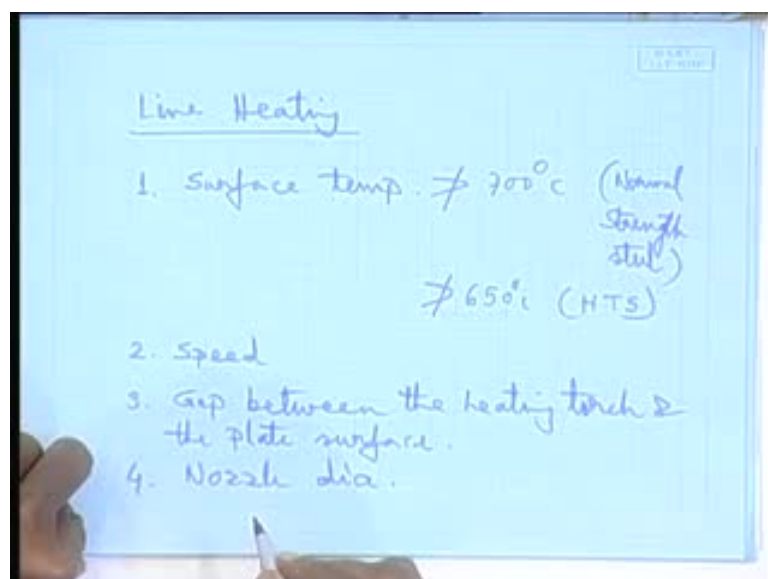 Line Heating
1. Surface temp. ≯ 700°C (Normal
Strength
steel)
≯ 650°C (HTS)
2. Speed
3. Gap between the heating torch &
the plate surface.
4. Nozzle dia.